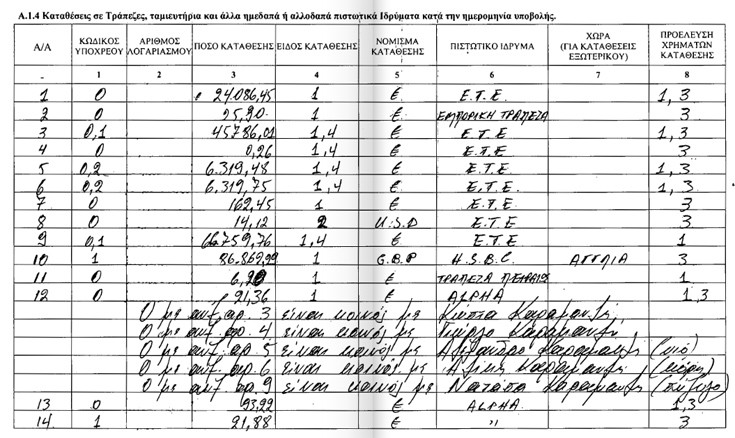 Α.1.4 Καταθέσεις σε Τράπεζες, ταμιευτήρια και άλλα ημεδαπά ή αλλοδαπά πιστωτικά Ιδρύματα κατά την ημερομηνία υποβολής.
Α/Α ΚΩΔΙΚΟΣ ΥΠΟΧΡΕΟΥ ΑΡΙΘΜΟΣ ΛΟΓΑΡΙΑΣΜΟΥ ΠΟΣΟ ΚΑΤΑΘΕΣΗΣ ΕΙΔΟΣ ΚΑΤΑΘΕΣΗΣ ΝΟΜΙΣΜΑ ΚΑΤΑΘΕΣΗΣ ΠΙΣΤΩΤΙΚΟ ΙΔΡΥΜΑ ΧΩΡΑ (ΓΙΑ ΚΑΤΑΘΕΣΕΙΣ ΕΞΩΤΕΡΙΚΟΥ) ΠΡΟΕΛΕΥΣΗ ΧΡΗΜΑΤΩΝ ΚΑΤΑΘΕΣΗΣ
- 1 2 3 4 5 6 7 8
1 0 24.086,45 1 € Ε.Τ.Ε. 1,3
2 0 25,20 1 € ΕΜΠΟΡΙΚΗ ΤΡΑΠΕΖΑ 3
3 0,1 45786,01 1,4 € Ε.Τ.Ε 1,3
4 0 0,26 1,4 € Ε.Τ.Ε. 3
5 0,2 6.319,48 1,4 € Ε.Τ.Ε 1,3
6 0,2 6.319,75 1,4 € Ε,Τ.Ε. 1,3
7 0 162,45 1 € Ε.Τ.Ε 3
8 0 14,12 2 U.S.D Ε.Τ.Ε 3
9 0,1 66.759,76 1,4 € Ε.Τ.Ε 1
10 1 86.869,99 1 G.B.P H.S.B.C. ΑΓΓΛΙΑ 3
11 0 1 € ΤΡΑΠΕΖΑ ΠΕΙΡΑΙΩΣ 1
12 0 21,36 1 € ALPHA 1,3
0 με αυξ. αρ. 3 είναι κοινός με
0 με αυξ. αρ. 4 είναι κοινός με Γιώργο
0 με αυξ. αρ. 5 είναι κοινός με Αλέξανδρο (υιό)
0 με αυξ. αρ. 6 είναι κοινός με (κόρη)
0 με αυξ. αρ. 9 είναι κοινός με Νατάσα (σύζυγο)
13 0 93,22 € ALPHA 1,3
14 1 21,88 € " 3